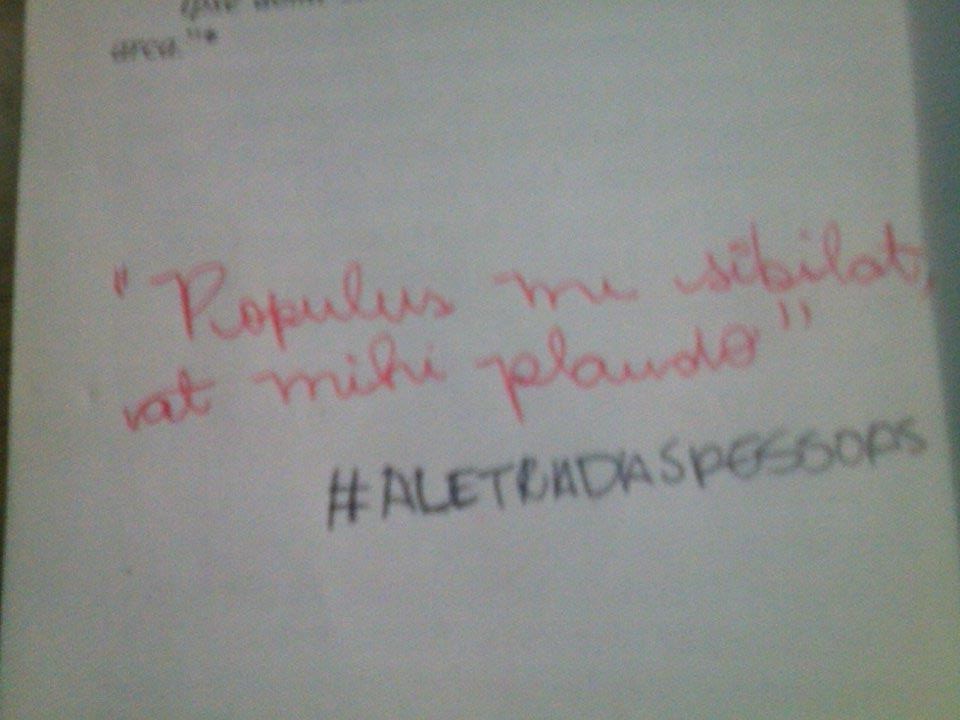 arca."*
"Populus me sibilat,
at mihi plaudo"
#ALETRADASPESSOAS